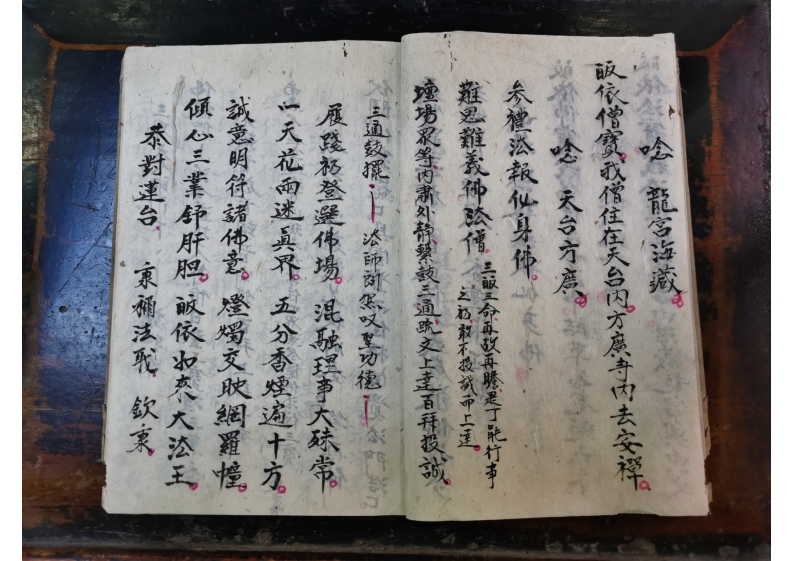 唸　龍宮海藏
皈依僧寶我僧住在天台内方廣寺内去安禪
唸　天台方廣
参禮法報化身佛
難思難義佛法僧
三皈三命再啟再瞻是丁能行事
之初敢不投誠而上達
壇場眾等内肅外静擊鼓三通疏文上達百拜投誠
三通鼓擺　法師訃怨叹聖功德
履踐初登選佛場　混融理事大殊常
一天花雨迷眞界　五分香煙遍十方
誠意明符諸佛意　燈燭交映網羅幢
傾心三業舒肝胆　皈依如來大法王
恭對蓮台　秉彌法戢　欽秉